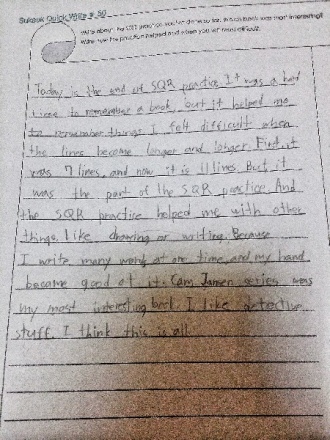 Quick Write # 50
Today is the end of SQR practice. It was a hard
time to remember a book, but it helped me
to remember things. I felt difficult when
the lines become longer and longer. First, it
was 7 lines, and now it is 11 lines. But, it
was the part of the SQR practice. And
the SQR practice helped me with other
things. Like drawing or writing. Because
I write many words at one time, and my hand
became good at it. Cam Jansen series was
my most interesting book. I like detective
stuff. I think this is all.